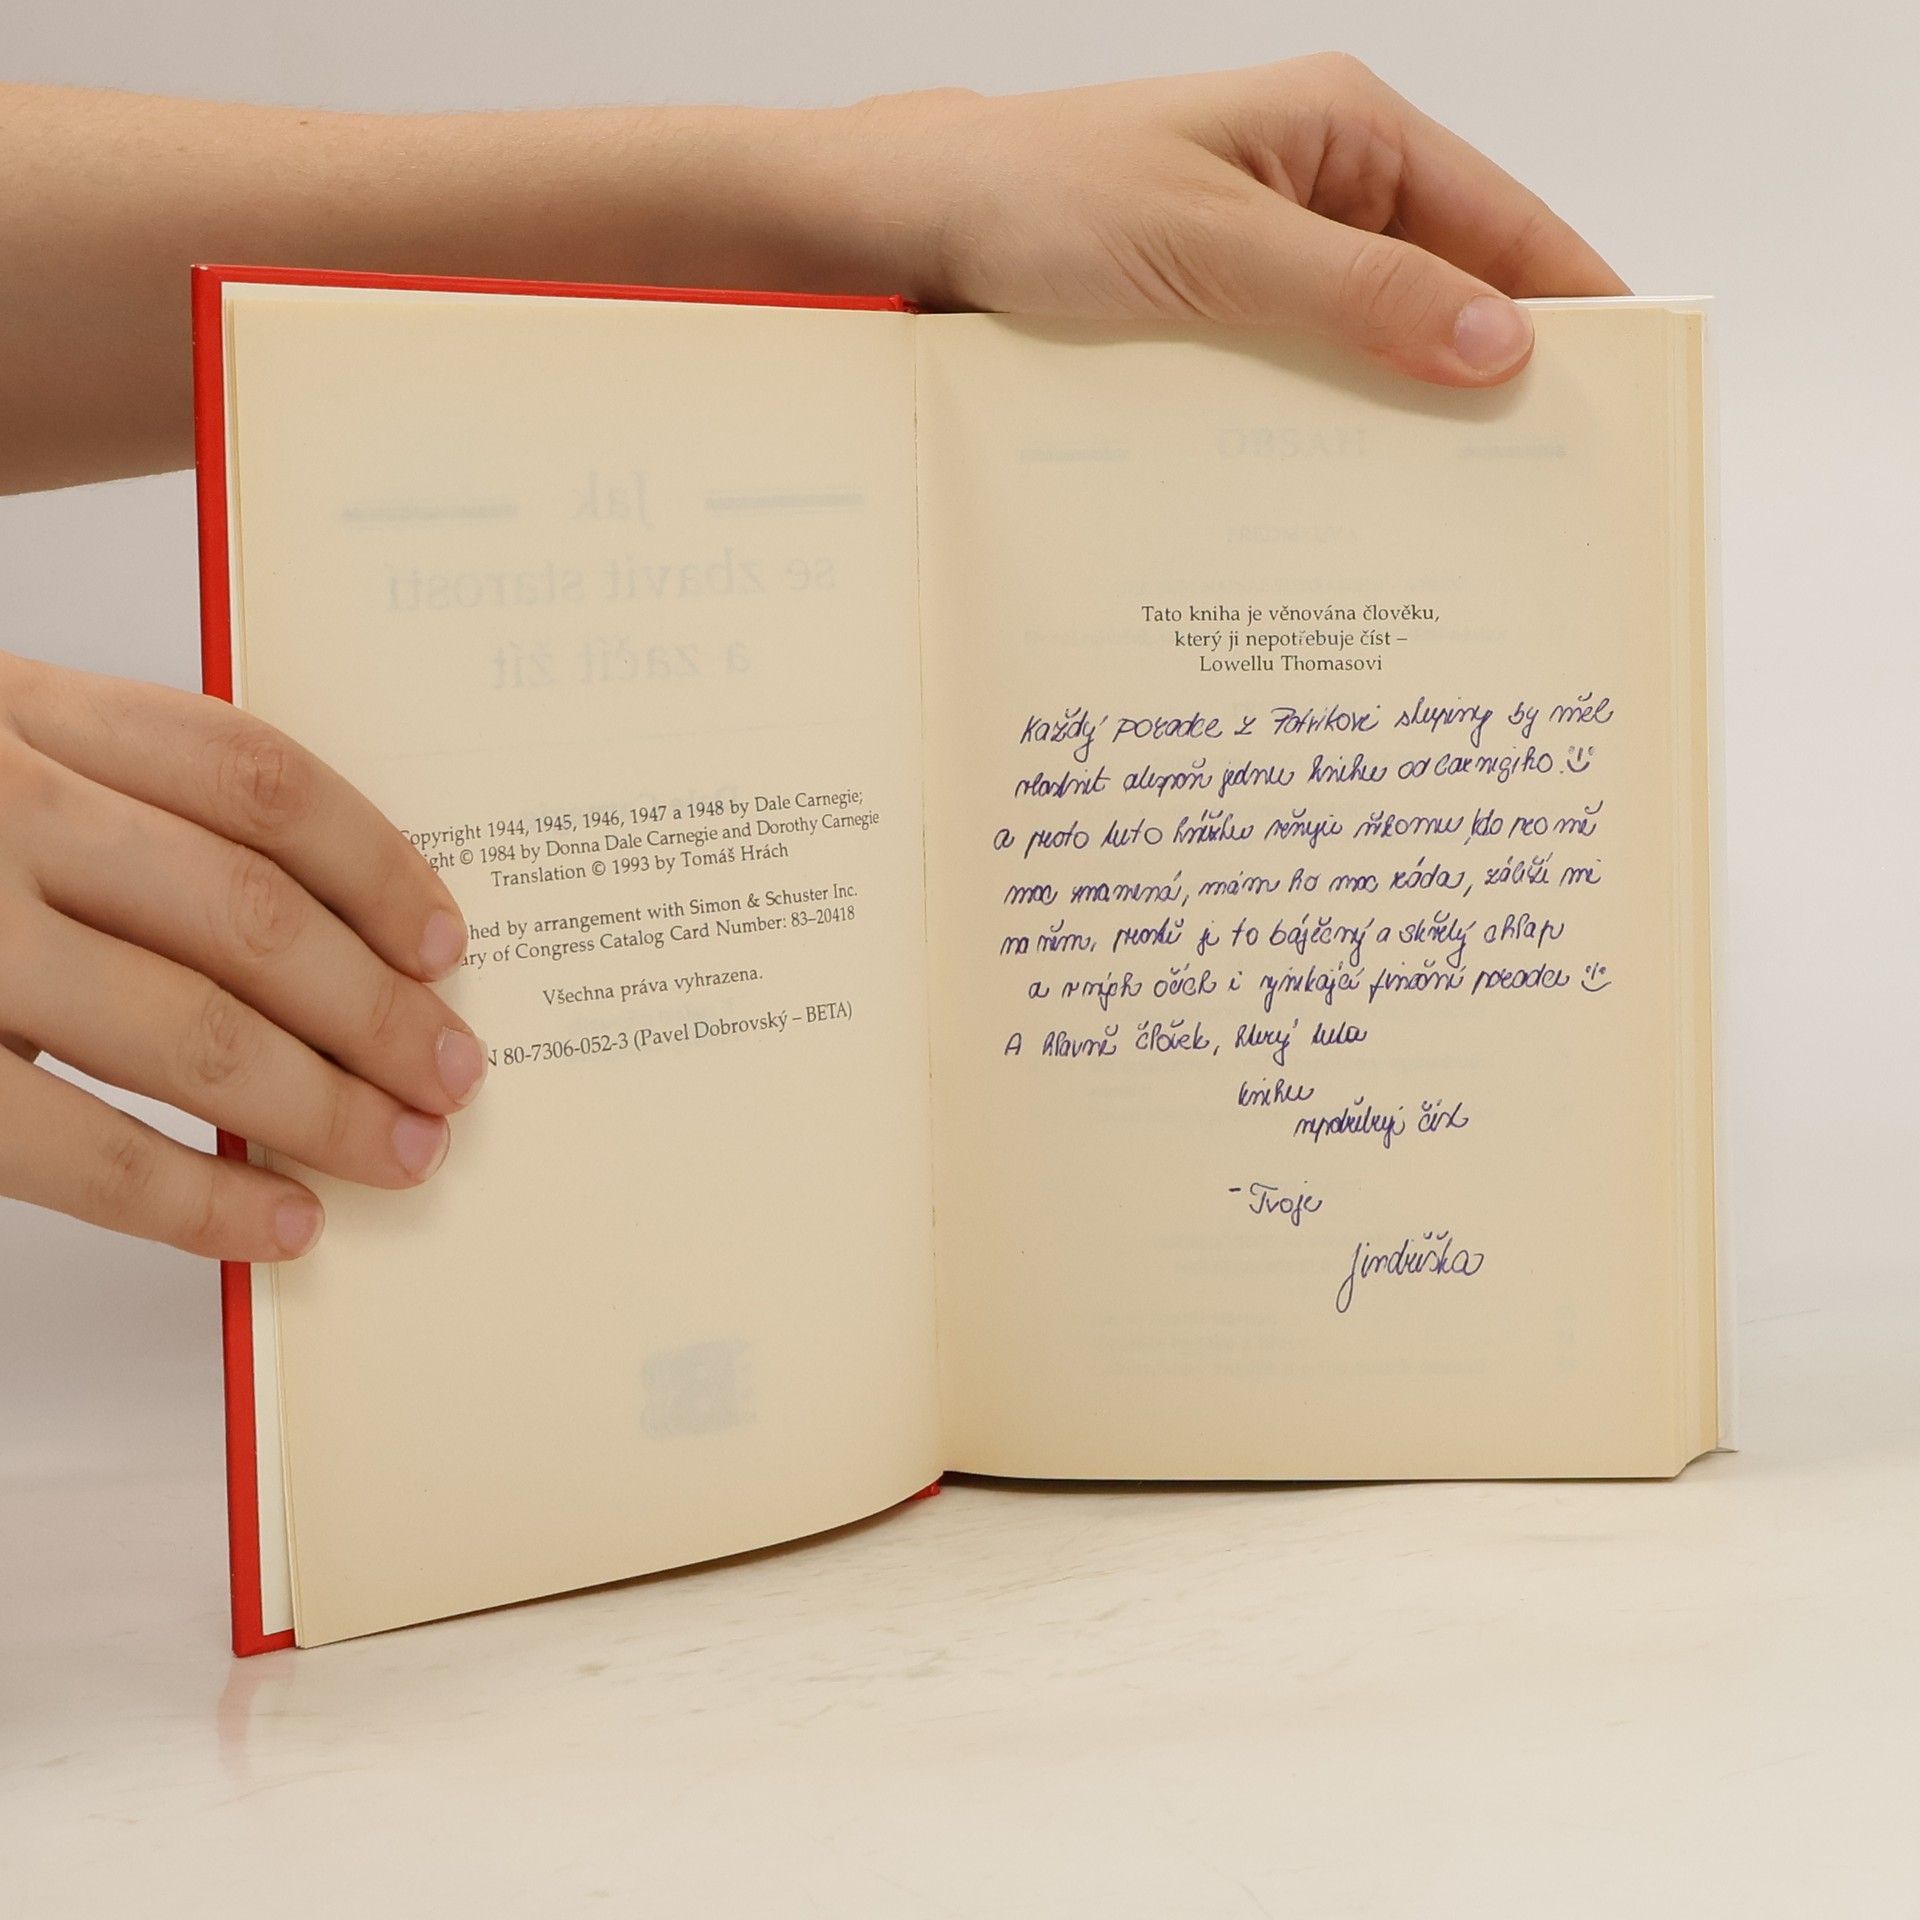 Jak
se zbavit starostí
a začít žít
Copyright 1944, 1945, 1946, 1947 a 1948 by Dale Carnegie;
ght © 1984 by Donna Dale Carnegie and Dorothy Carnegie
Translation © 1993 by Tomáš Hrách
hed by arrangement with Simon & Schuster Inc.
ary of Congress Catalog Card Number: 83–20418
Všechna práva vyhrazena.
N 80-7306-052-3 (Pavel Dobrovský – BETA)
OBSAH
Tato kniha je věnována člověku,
který ji nepotřebuje číst –
Lowellu Thomasovi
Každý poradce z Patrikovi skupiny by měl
vlastnit alespoň jednu knihu od Carnegiho :)
a proto tuto knížku věnuji někomu kdo pro mě
moc znamená, mám ho moc ráda, záleží mi
na něm, prostě je to báječný a skvělý chlap
a v mých očích i vynikající finanční poradce :)
A hlavně člověk, který tuto
knihu
nepotřebuje číst
- Tvoje
Jindřiška